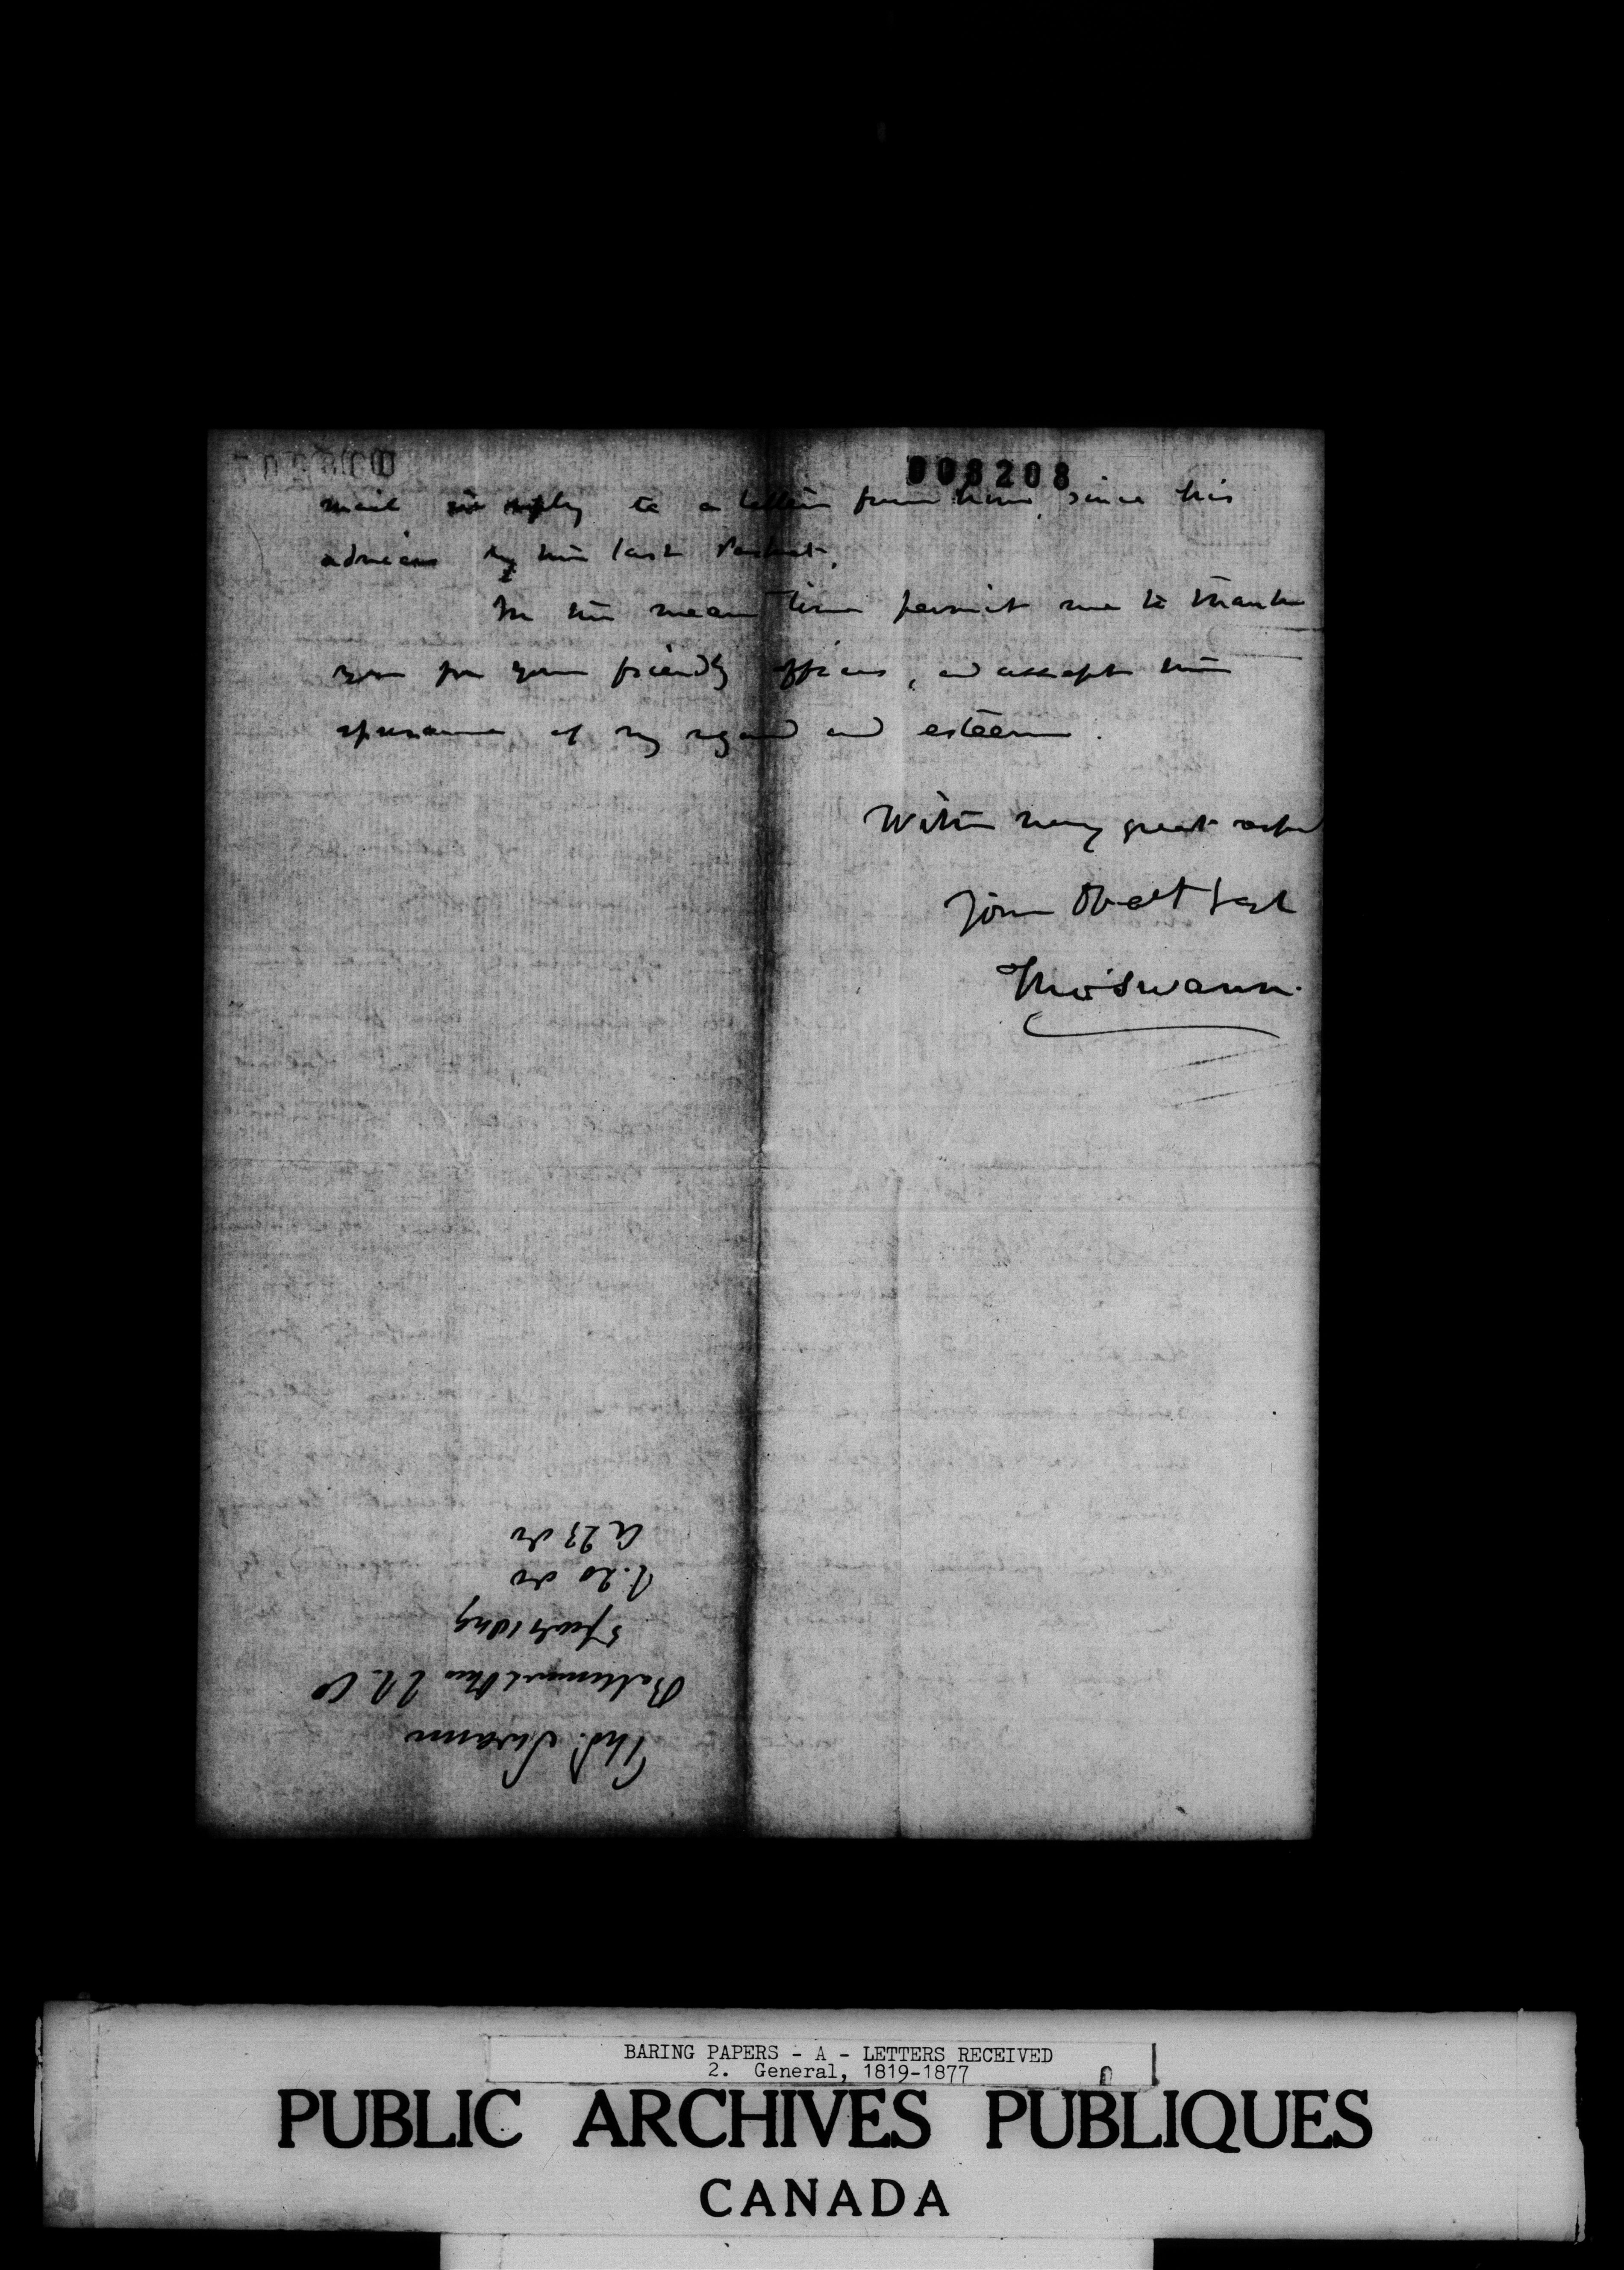 008208
mail in reply to a letter from him, since his
advices by the last Packet.
In the mean time permit me to thank
you for your friendly offices, and accept the
assurance of my regard and esteem.
With very great respt
Your Obedt Sert
Thos Swann.
Thos. Swann
Baltimore & Ohio R.R. Co
5 July 1849
R. 20 do
A 23 do
BARING PAPERS - A - LETTERS RECEIVED
2. General, 1819-1877
PUBLIC ARCHIVES PUBLIQUES
CANADA